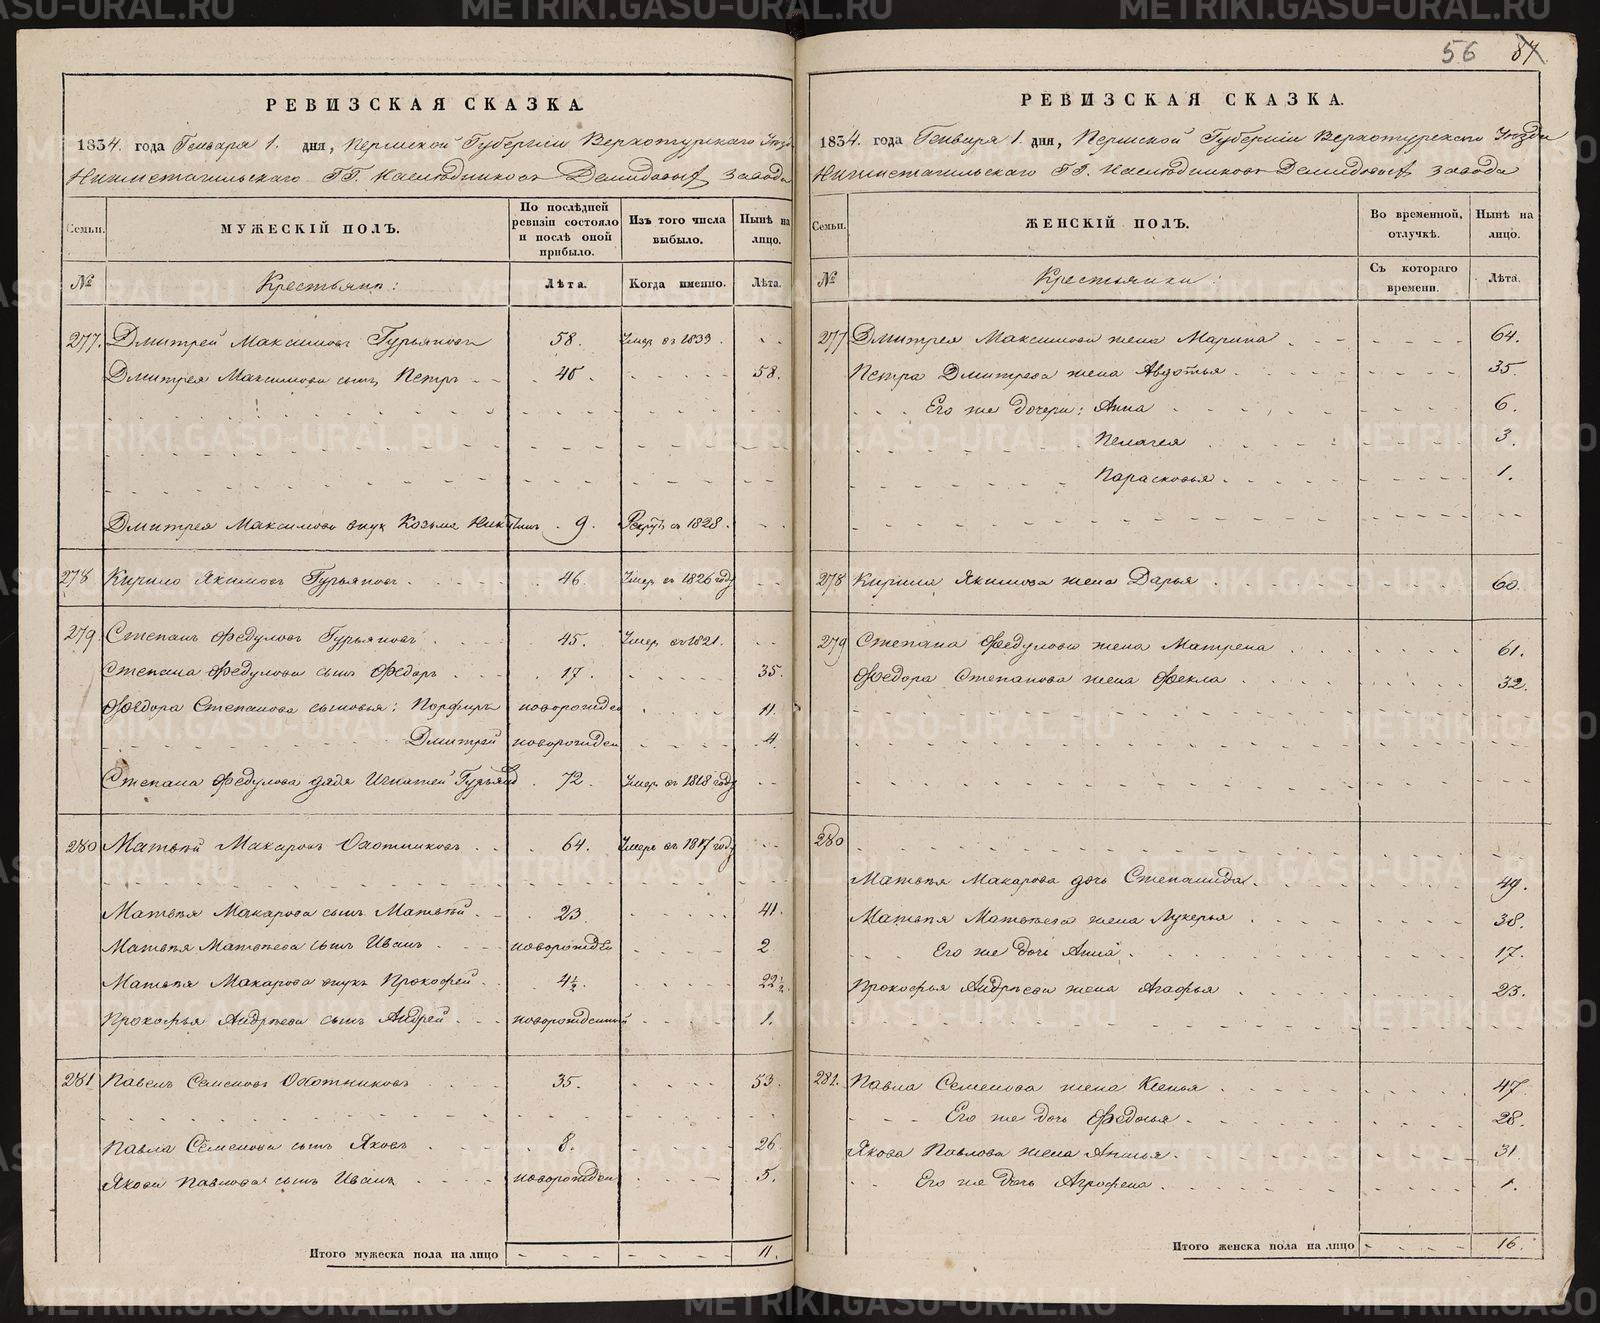 56 87
РЕВИЗСКАЯ СКАЗКА.
1834. года Генваря 1. дня, Пермской Губерніи Верхотурскаго Уѣзда
Нижнетагильскаго ГГ. Наслѣдниковъ Демидовыхъ завода
Семьи. МУЖЕСКІЙ ПОЛЪ. По послѣдней ревизіи состояло и послѣ оной прибыло. Изъ того числа выбыло. Нынѣ на лицо.
№ Крестьянъ: Лѣта. Когда именно. Лѣта.
277. Дмитрей Максимовъ Гурьяновъ 58. Умер въ 1833.
Дмитрея Максимова сынъ Петръ 40. 58.
Дмитрея Максимова внук Козьма Никитинъ 9. Рекрутъ съ 1828.
278 Кирило Якимовъ Гурьяновъ 46. Умер. въ 1826 году
279 Степанъ Федуловъ Гурьяновъ 45. Умер. въ 1821.
Степана Федулова сынъ Федоръ 17. 35.
Федора Степанова сыновья: Порфиръ новорожден 11.
Дмитрей новорожден 4.
Степана Федулова дядя Игнатей Гурьяновъ 72. Умер. въ 1818 году
280 Матвѣй Макаровъ Охотниковъ 64. Умеръ въ 1817 году
Матвѣя Макарова сынъ Матвѣй 23. 41.
Матвѣя Матвѣева сынъ Иванъ новорожден 2
Матвѣя Макарова внукъ Прокофей 4½. 22½.
Прокофья Андрѣева сынъ Андрей новорожденный 1.
281 Павелъ Семеновъ Охотниковъ 35. 53.
Павла Семенова сынъ Яковъ 8. 26.
Якова Павлова сынъ Иванъ новорожден 5.
Итого мужеска пола на лицо 11.
РЕВИЗСКАЯ СКАЗКА.
1834. года Генваря 1. дня, Пермской Губерніи Верхотурскаго Уѣзда
Нижнетагильскаго ГГ. Наслѣдниковъ Демидовыхъ завода
Семьи. ЖЕНСКІЙ ПОЛЪ. Во временной отлучкѣ. Нынѣ на лицо.
№ Крестьянки: Съ котораго времени. Лѣта.
277 Дмитрея Максимова жена Марина 64.
Петра Дмитрева жена Авдотья 35.
Его же дочери: Анна 6.
Пелагея 3.
Парасковья 1.
278 Кирила Якимова жена Дарья 60.
279 Степана Федулова жена Матрена 61.
Федора Степанова жена Фекла 32.
280
Матвѣя Макарова дочь Степанида 49.
Матвѣя Матвѣева жена Лукерья 38.
Его же дочь Анна 17.
Прокофья Андрѣева жена Агафья 23.
281. Павла Семенова жена Ксенья 47.
Его же дочь Федосья 28.
Якова Павлова жена Анисья 31.
Его же дочь Агрофена 1.
Итого женска пола на лицо 16.
METRIKI.GASO-URAL.RU